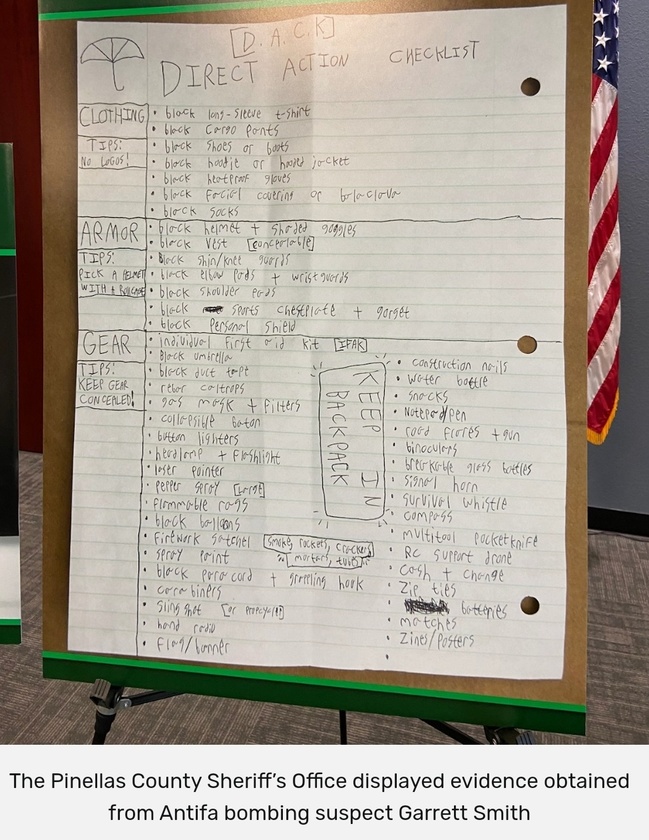 [D.A.C.K]
DIRECT ACTION CHECKLIST
CLOTHING
TIPS:
NO LOGOS!
• black long-sleeve t-shirt
• black cargo pants
• black shoes or boots
• black hoodie or hooded jacket
• black heatproof gloves
• black facial covering or balaclava
• black socks
ARMOR
TIPS:
PICK A HELMET
WITH A
• black helmet + shaded goggles
• black vest [concealable]
• black shin/knee guards
• black elbow pads + wristguards
• black shoulder pads
• black sports chestplate + gorget
• black personal shield
GEAR
TIPS:
KEEP GEAR
CONCEALED!
• individual first aid kit [IFAK]
• black umbrella
• black duct tape
• rebar caltrops
• gas mask + filters
• collapsible baton
• button lighters
• headlamp + flashlight
• laser pointer
• pepper spray [large]
• flammable rags
• black balloons
• firework satchel [smoke, rockets, crackers, mortars, tubes]
• spray paint
• black paracord + grappling hook
• carabiners
• slingshot
• hand radio
• flag/banner
KEEP IN
BACKPACK
• construction nails
• water bottle
• snacks
• Notepad/pen
• road flares + gun
• binoculars
• breakable glass bottles
• signal horn
• survival whistle
• compass
• multitool pocketknife
• RC support drone
• cash + change
• Zip ties
• batteries
• matches
• Zines/posters
The Pinellas County Sheriff's Office displayed evidence obtained
from Antifa bombing suspect Garrett Smith